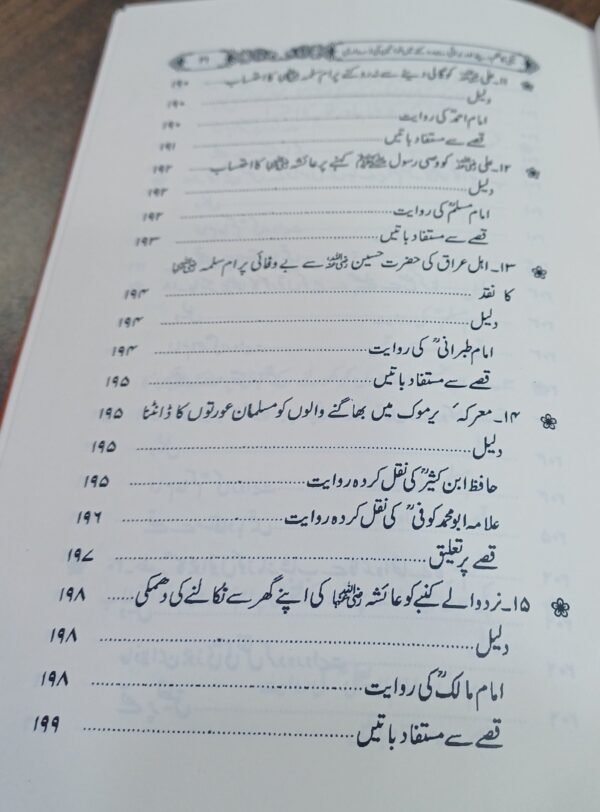 ۱۱۔ علی رضی اللہ عنہ کو گالی دینے سے نہ روکنے پر ام سلمہ رضی اللہ عنہا کا احتساب ۱۹۰
دلیل ۱۹۰
امام احمدؒ کی روایت ۱۹۰
قصے سے مستفاد باتیں ۱۹۱
۱۲۔ علی رضی اللہ عنہ کو وصی رسول ﷺ کہنے پر عائشہ رضی اللہ عنہا کا احتساب ۱۹۲
دلیل ۱۹۲
امام مسلمؒ کی روایت ۱۹۲
قصے سے مستفاد باتیں ۱۹۳
۱۳۔ اہل عراق کی حضرت حسین رضی اللہ عنہ سے بے وفائی پر ام سلمہ رضی اللہ عنہا
کا نقد ۱۹۴
دلیل ۱۹۴
امام طبرانیؒ کی روایت ۱۹۴
قصے سے مستفاد باتیں ۱۹۵
۱۴۔ معرکہ ٔ یرموک میں بھاگنے والوں کو مسلمان عورتوں کا ڈانٹنا ۱۹۵
دلیل ۱۹۵
حافظ ابن کثیرؒ کی نقل کردہ روایت ۱۹۵
علامہ ابو محمد کوفیؒ کی نقل کردہ روایت ۱۹۶
قصے پر تعلیق ۱۹۷
۱۵۔ نرد والے کنبے کو عائشہ رضی اللہ عنہا کی اپنے گھر سے نکالنے کی دھمکی ۱۹۸
دلیل ۱۹۸
امام مالکؒ کی روایت ۱۹۸
قصے سے مستفاد باتیں ۱۹۹